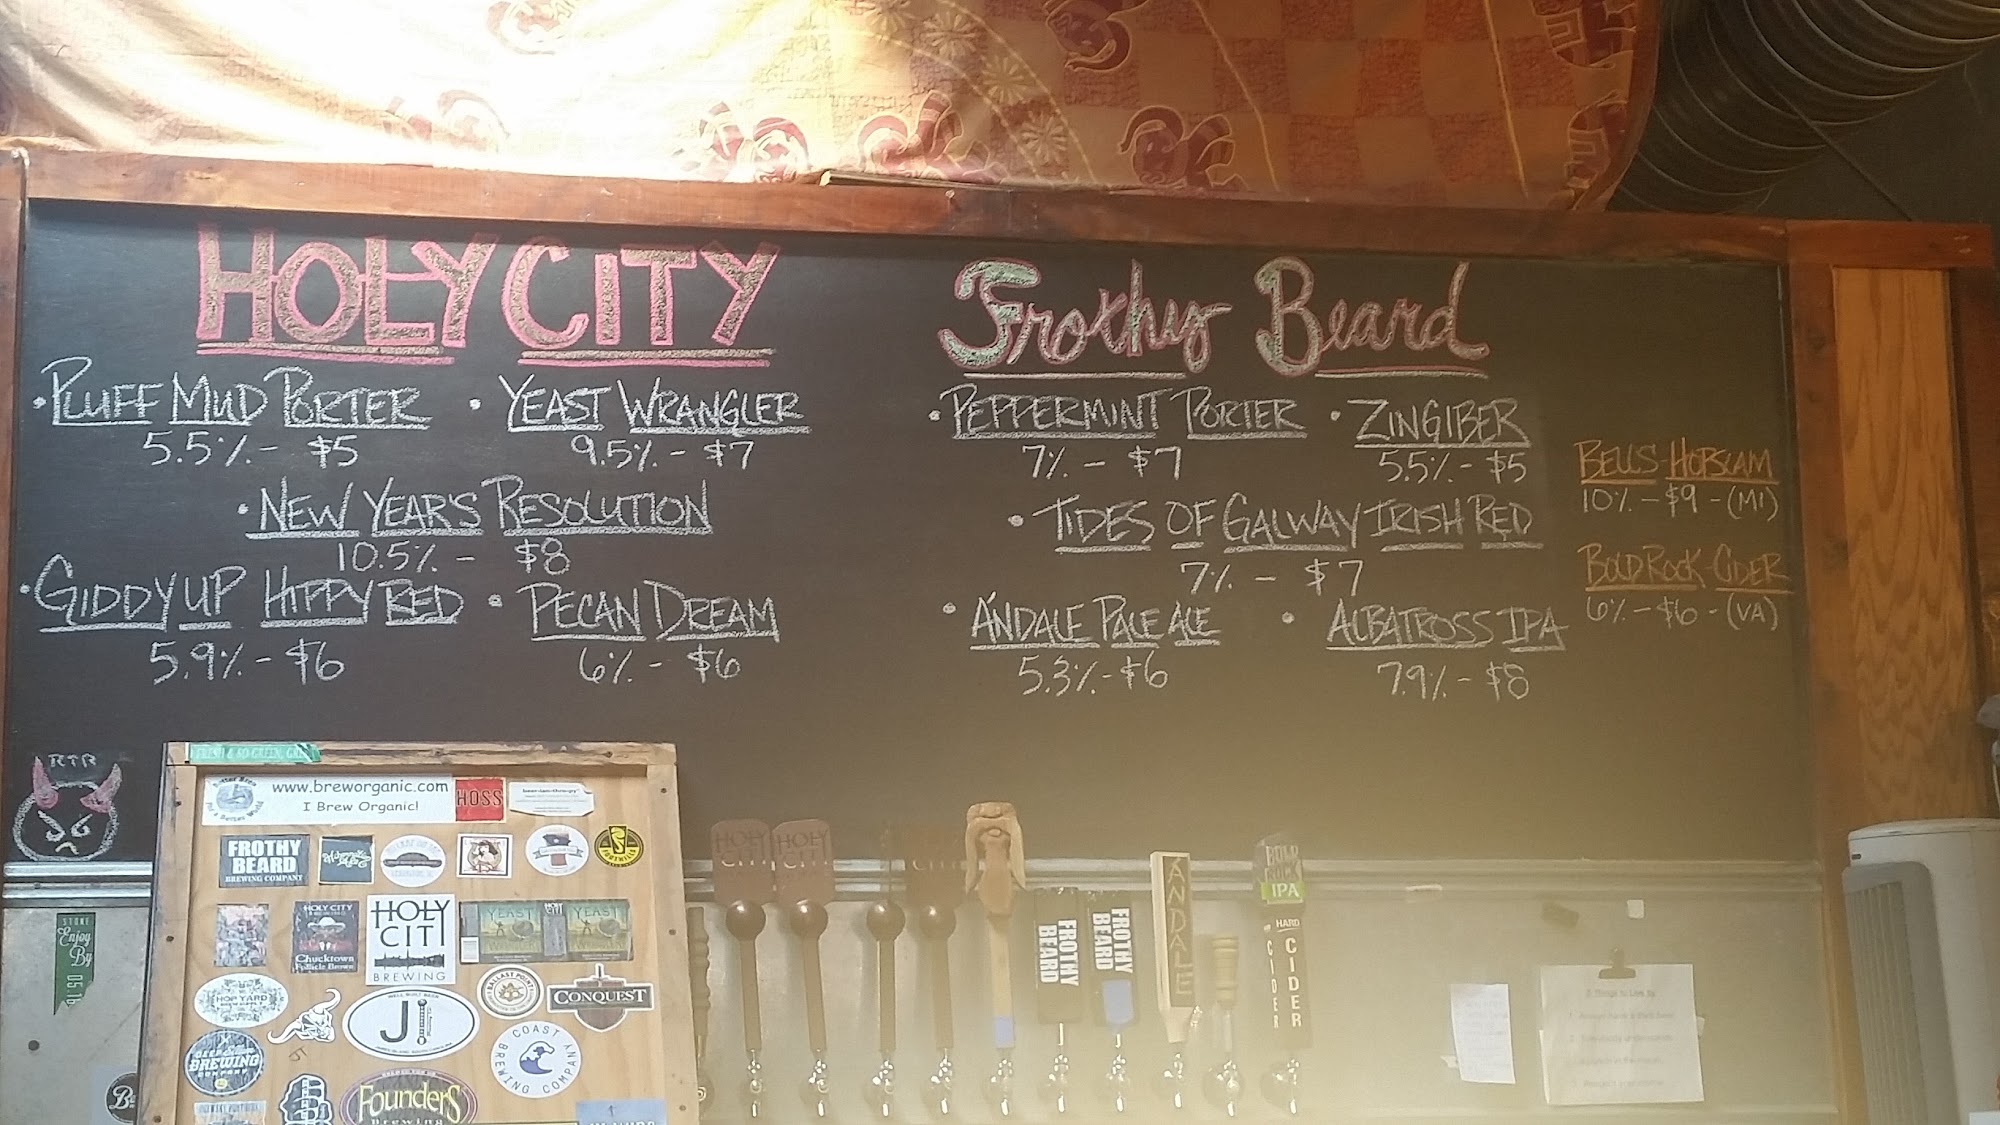 HOLY CITY
• PLUFF MUD PORTER
5.5% - $5
• YEAST WRANGLER
9.5% - $7
• NEW YEAR'S RESOLUTION
10.5% - $8
• GIDDY UP HIPPY RED
5.9% - $6
• PECAN DREAM
6% - $6
Frothy Beard
• PEPPERMINT PORTER
7% - $7
• ZINGIBER
5.5% - $5
• TIDES OF GALWAY IRISH RED
7% - $7
• ÁNDALE PALE ALE
5.3% - $6
• ALBATROSS IPA
7.9% - $8
BELLS - HOPSLAM
10% - $9 - (MI)
BOLD ROCK - CIDER
6% - $6 - (VA)
RTR
www.breworganic.com
I Brew Organic!
HOSS
FROTHY
BEARD
BREWING COMPANY
FOOTHILLS
HOLY CITY
Chucktown
Follicle Brown
HOLY
CITY
BREWING
YEAST
YEAST
HOP YARD
J
BALLAST POINT
CONQUEST
COAST
BREWING COMPANY
BREWING
COMPANY
FOUNDERS
Brewing
STONE
Enjoy
By
05.16
HOLY
CITY
HOLY
CITY
CITY
FROTHY
BEARD
FROTHY
BEARD
ÁNDALE
BOLD
ROCK
IPA
HARD
CIDER
CIDER